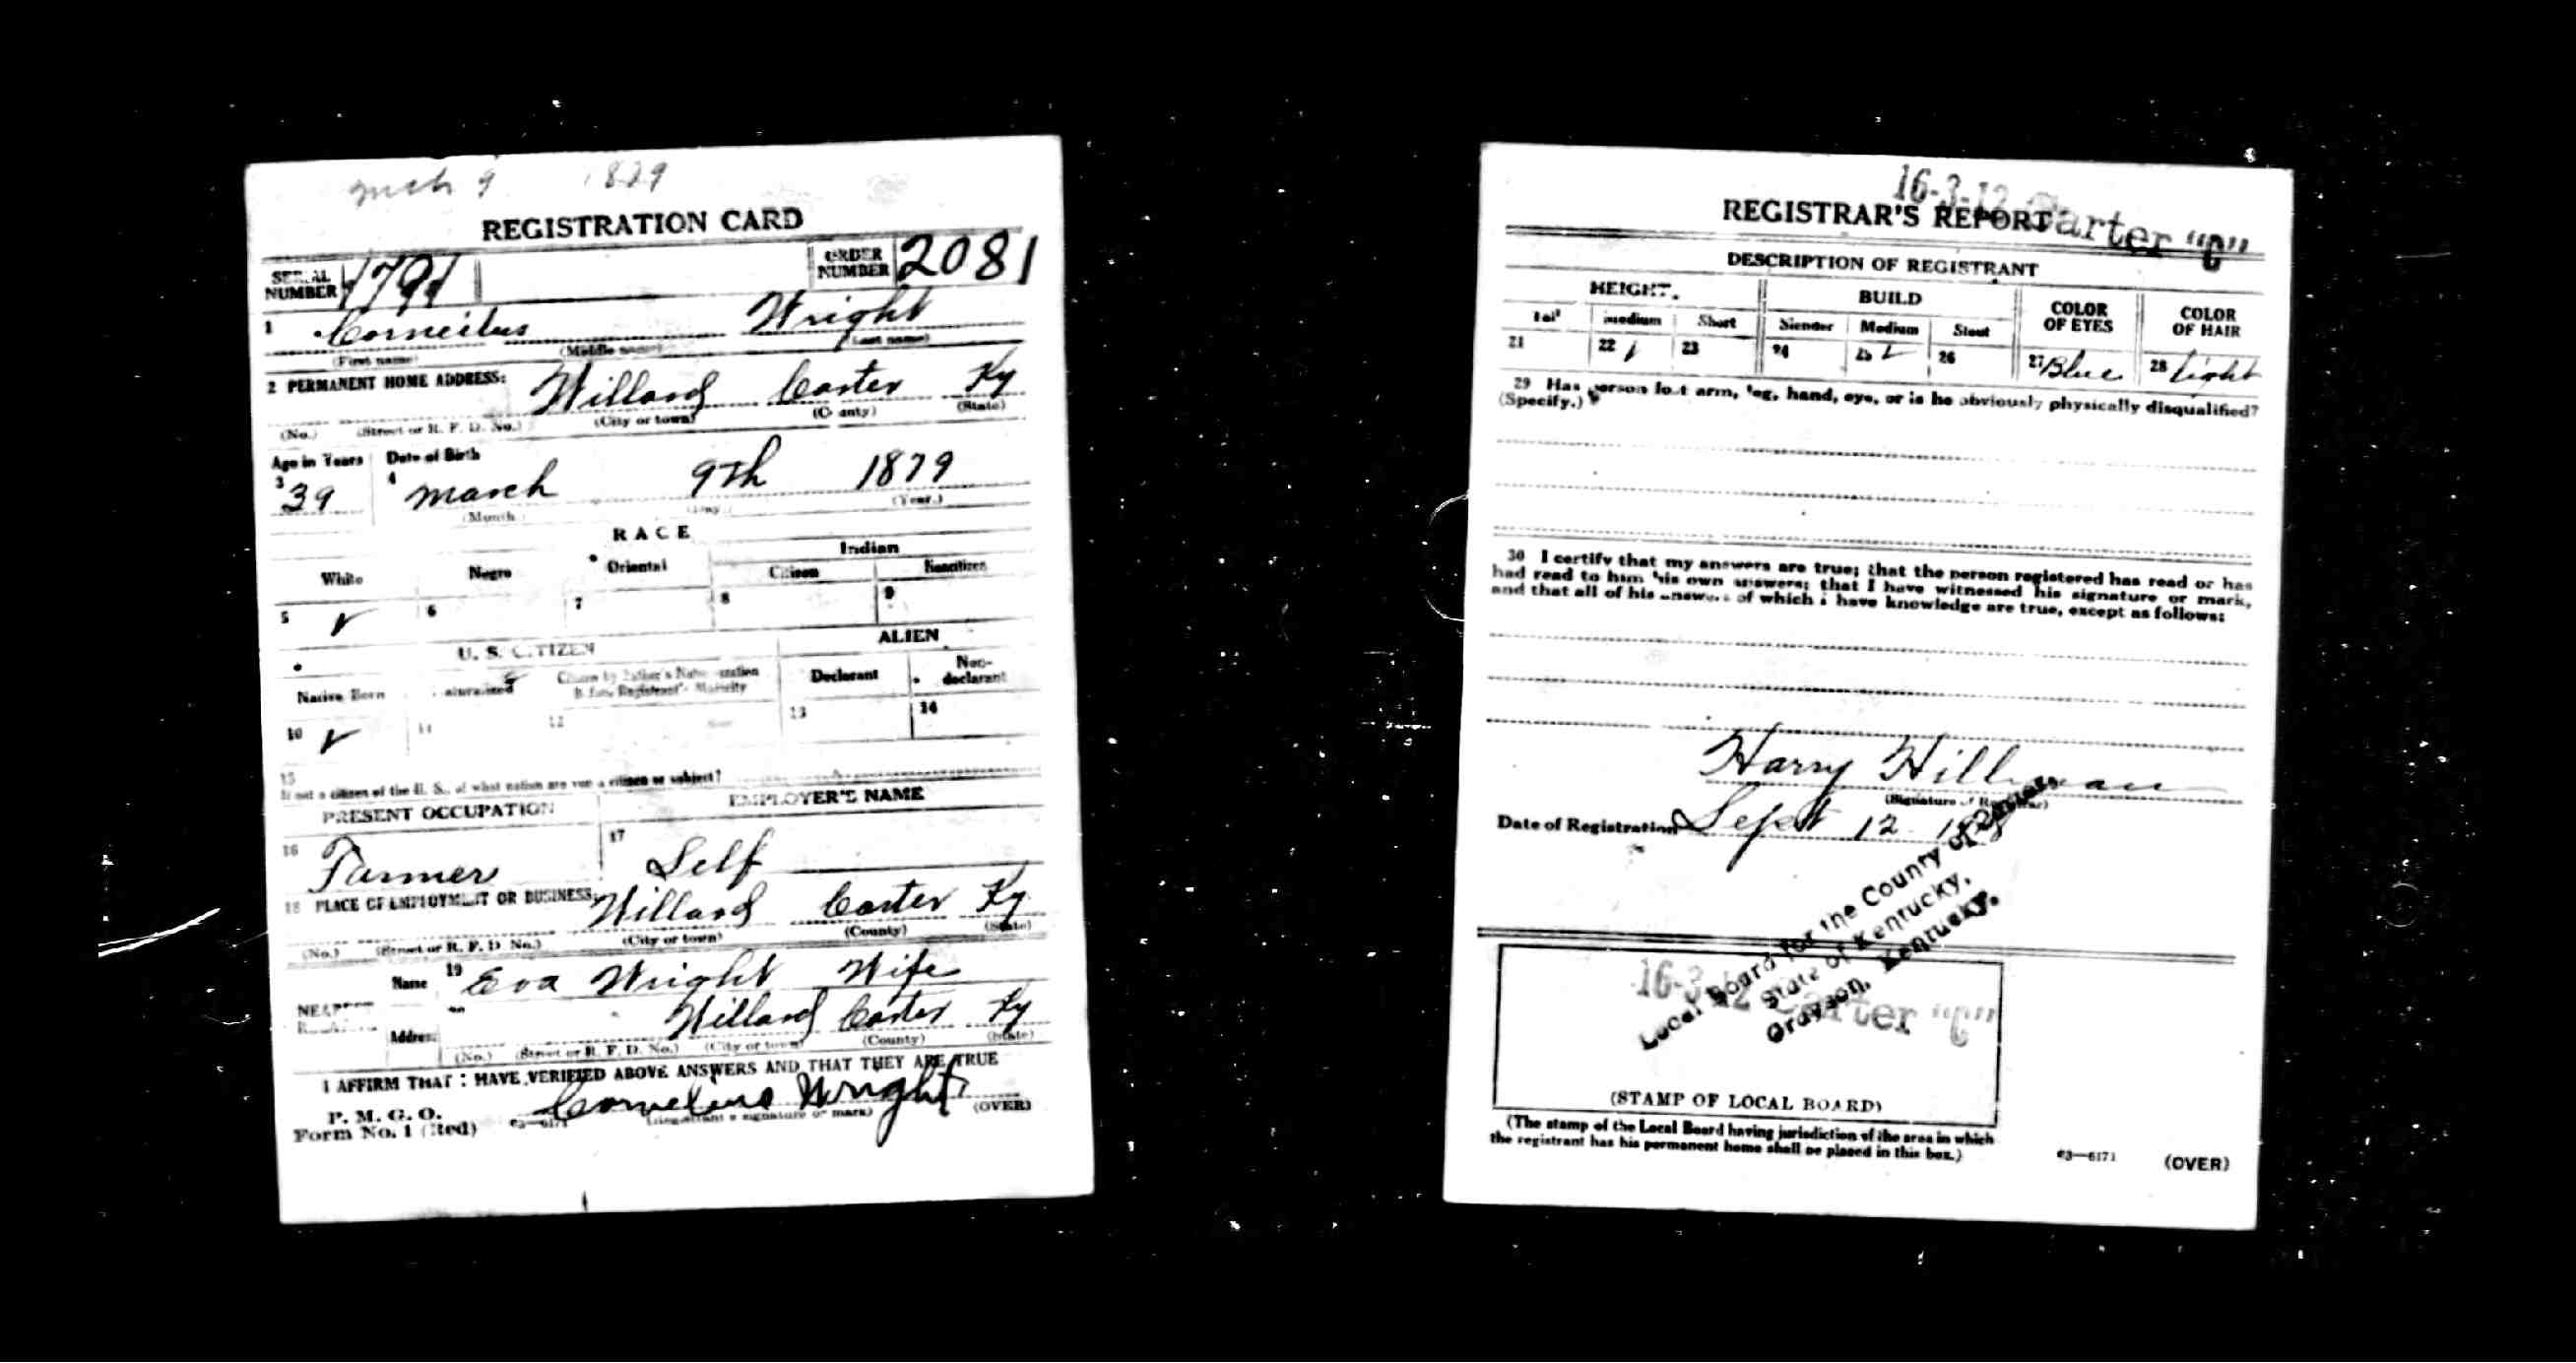 mch 9 1879
REGISTRATION CARD
SERIAL NUMBER 1791 ORDER NUMBER 2081
1 Corneilus Wright
(First name) (Middle name) (Last name)
2 PERMANENT HOME ADDRESS: Willard Carter Ky
(No.) (Street or R. F. D. No.) (City or town) (County) (State)
Age in Years Date of Birth
3 39 4 March 9th 1879
(Month) (Day) (Year.)
RACE
White Negro Oriental Indian
Citizen Noncitizen
5 ✓ 6 7 8 9
U. S. CITIZEN ALIEN
Native Born Naturalized Citizen by Father's Naturalization Before Registrant's Majority Declarant Non-declarant
10 ✓ 11 12 13 14
15
If not a citizen of the U. S., of what nation are you a citizen or subject?
PRESENT OCCUPATION EMPLOYER'S NAME
16 Farmer 17 Self
18 PLACE OF EMPLOYMENT OR BUSINESS: Willard Carter Ky
(No.) (Street or R. F. D. No.) (City or town) (County) (State)
Name 19 Eva Wright Wife
NEAREST
Address Willard Carter Ky
(No.) (Street or R. F. D. No.) (City or town) (County) (State)
I AFFIRM THAT I HAVE VERIFIED ABOVE ANSWERS AND THAT THEY ARE TRUE
P. M. G. O.
Form No. 1 (Red) 03—6171 Cornelius Wright
(Registrant's signature or mark) (OVER)
16-3-12 Carter "C"
REGISTRAR'S REPORT
DESCRIPTION OF REGISTRANT
HEIGHT. BUILD COLOR OF EYES COLOR OF HAIR
Tall Medium Short Slender Medium Stout
21 22 ✓ 23 24 25 ✓ 26 27 Blue 28 Light
29 Has person lost arm, leg, hand, eye, or is he obviously physically disqualified?
(Specify.)
30 I certify that my answers are true; that the person registered has read or has
had read to him his own answers; that I have witnessed his signature or mark,
and that all of his answers of which I have knowledge are true, except as follows:
Harry Hillman
(Signature of Registrar)
Date of Registration Sept 12 1918
Local Board for the County of Carter
State of Kentucky,
Grayson, Kentucky.
16-3-12 Carter "C"
(STAMP OF LOCAL BOARD)
(The stamp of the Local Board having jurisdiction of the area in which
the registrant has his permanent home shall be placed in this box.)
03—6171 (OVER)